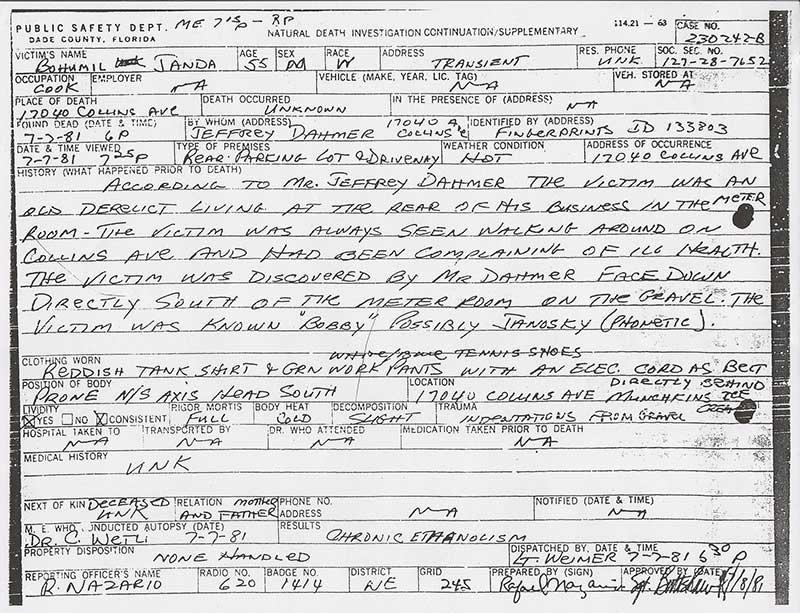 PUBLIC SAFETY DEPT. ME 7:15P - RP 114.21 — 63 CASE NO.
DADE COUNTY, FLORIDA NATURAL DEATH INVESTIGATION CONTINUATION/SUPPLEMENTARY 230242-B
VICTIM'S NAME AGE SEX RACE ADDRESS RES. PHONE SOC. SEC. NO.
BOHUMIL JANDA 55 M W TRANSIENT UNK. 127-28-7652
OCCUPATION EMPLOYER VEHICLE (MAKE, YEAR, LIC. TAG) VEH. STORED AT
COOK NA NA NA
PLACE OF DEATH DEATH OCCURRED IN THE PRESENCE OF (ADDRESS)
17040 COLLINS AVE UNKNOWN NA
FOUND DEAD (DATE & TIME) BY WHOM (ADDRESS) 17040 A IDENTIFIED BY (ADDRESS)
7-7-81 6P JEFFREY DAHMER COLLINS FINGERPRINTS ID 133803
DATE & TIME VIEWED TYPE OF PREMISES WEATHER CONDITION ADDRESS OF OCCURRENCE
7-7-81 725P REAR PARKING LOT & DRIVEWAY HOT 17040 COLLINS AVE
HISTORY (WHAT HAPPENED PRIOR TO DEATH)
ACCORDING TO MR. JEFFREY DAHMER THE VICTIM WAS AN
OLD DERELICT LIVING AT THE REAR OF HIS BUSINESS IN THE METER
ROOM - THE VICTIM WAS ALWAYS SEEN WALKING AROUND ON
COLLINS AVE AND HAD BEEN COMPLAINING OF ILL HEALTH.
THE VICTIM WAS DISCOVERED BY MR DAHMER FACE DOWN
DIRECTLY SOUTH OF THE METER ROOM ON THE GRAVEL. THE
VICTIM WAS KNOWN "BOBBY" POSSIBLY JANOSKY (PHONETIC).
WHITE/BLUE TENNIS SHOES
CLOTHING WORN
REDDISH TANK SHIRT & GRN WORK PANTS WITH AN ELEC. CORD AS BELT
POSITION OF BODY LOCATION DIRECTLY BEHIND
PRONE N/S AXIS HEAD SOUTH 17040 COLLINS AVE MUNCHKINS ICE
LIVIDITY RIGOR MORTIS BODY HEAT DECOMPOSITION TRAUMA CREAM
YES NO CONSISTENT FULL COLD SLIGHT INDENTATIONS FROM GRAVEL
HOSPITAL TAKEN TO TRANSPORTED BY DR. WHO ATTENDED MEDICATION TAKEN PRIOR TO DEATH
NA NA NA NA
MEDICAL HISTORY
UNK
NEXT OF KIN DECEASED RELATION MOTHER PHONE NO. NOTIFIED (DATE & TIME)
UNK AND FATHER ADDRESS NA NA
M. E. WHO CONDUCTED AUTOPSY (DATE) RESULTS
DR. C. WETLI 7-7-81 CHRONIC ETHANOLISM
PROPERTY DISPOSITION DISPATCHED BY, DATE & TIME
NONE HANDLED LT. WEIMER 7-7-81 630 P
REPORTING OFFICER'S NAME RADIO NO. BADGE NO. DISTRICT GRID PREPARED BY (SIGN) APPROVED BY (DATE)
R. NAZARIO 620 1414 NE 245 Rafael Sgt.